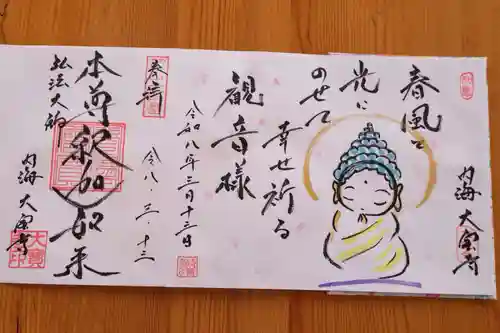 春風と
光に
のせて
幸せ祈る
観音様
令和八年三月十三日
内海 大宝寺
奉拝
令八、三、十三
本尊釈迦如来
弘法大師
内海 大宝寺